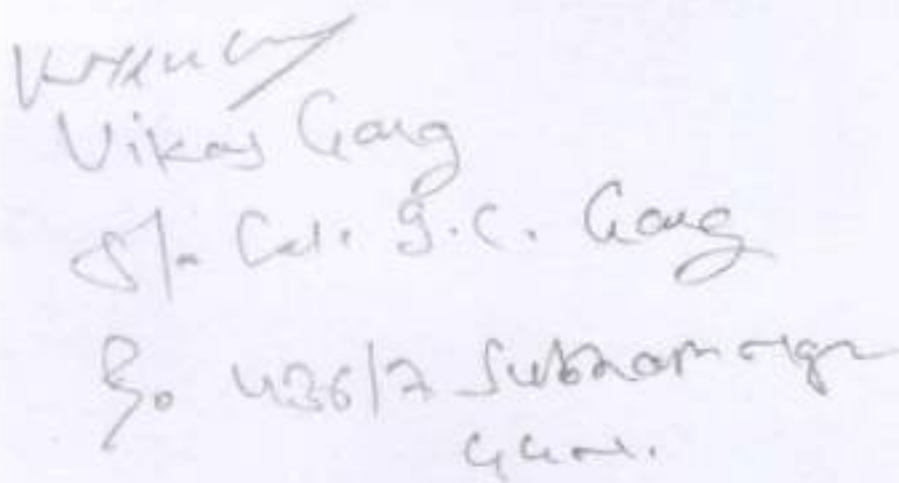 Vikas Garg
S/o Col. S.C. Garg
R/o 436/7 Subhash Nagar
GGN.